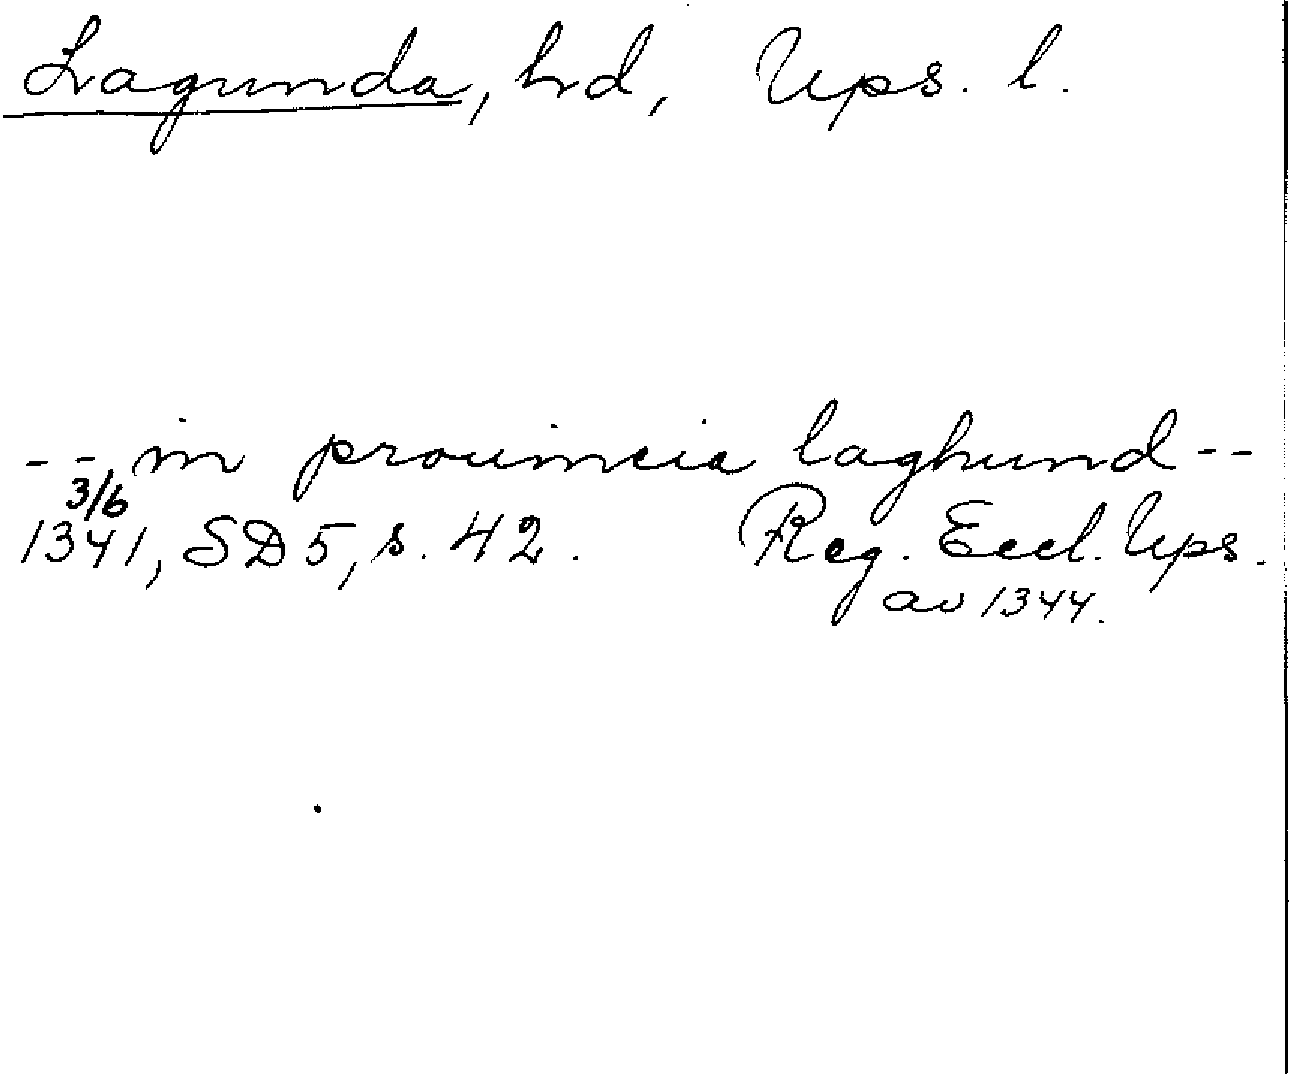 Lagunda, hd, Ups. l.
-- in prouincia laghund--
3/6
1341, SD 5, s. 42. Reg. Eccl. Ups.
av 1344.